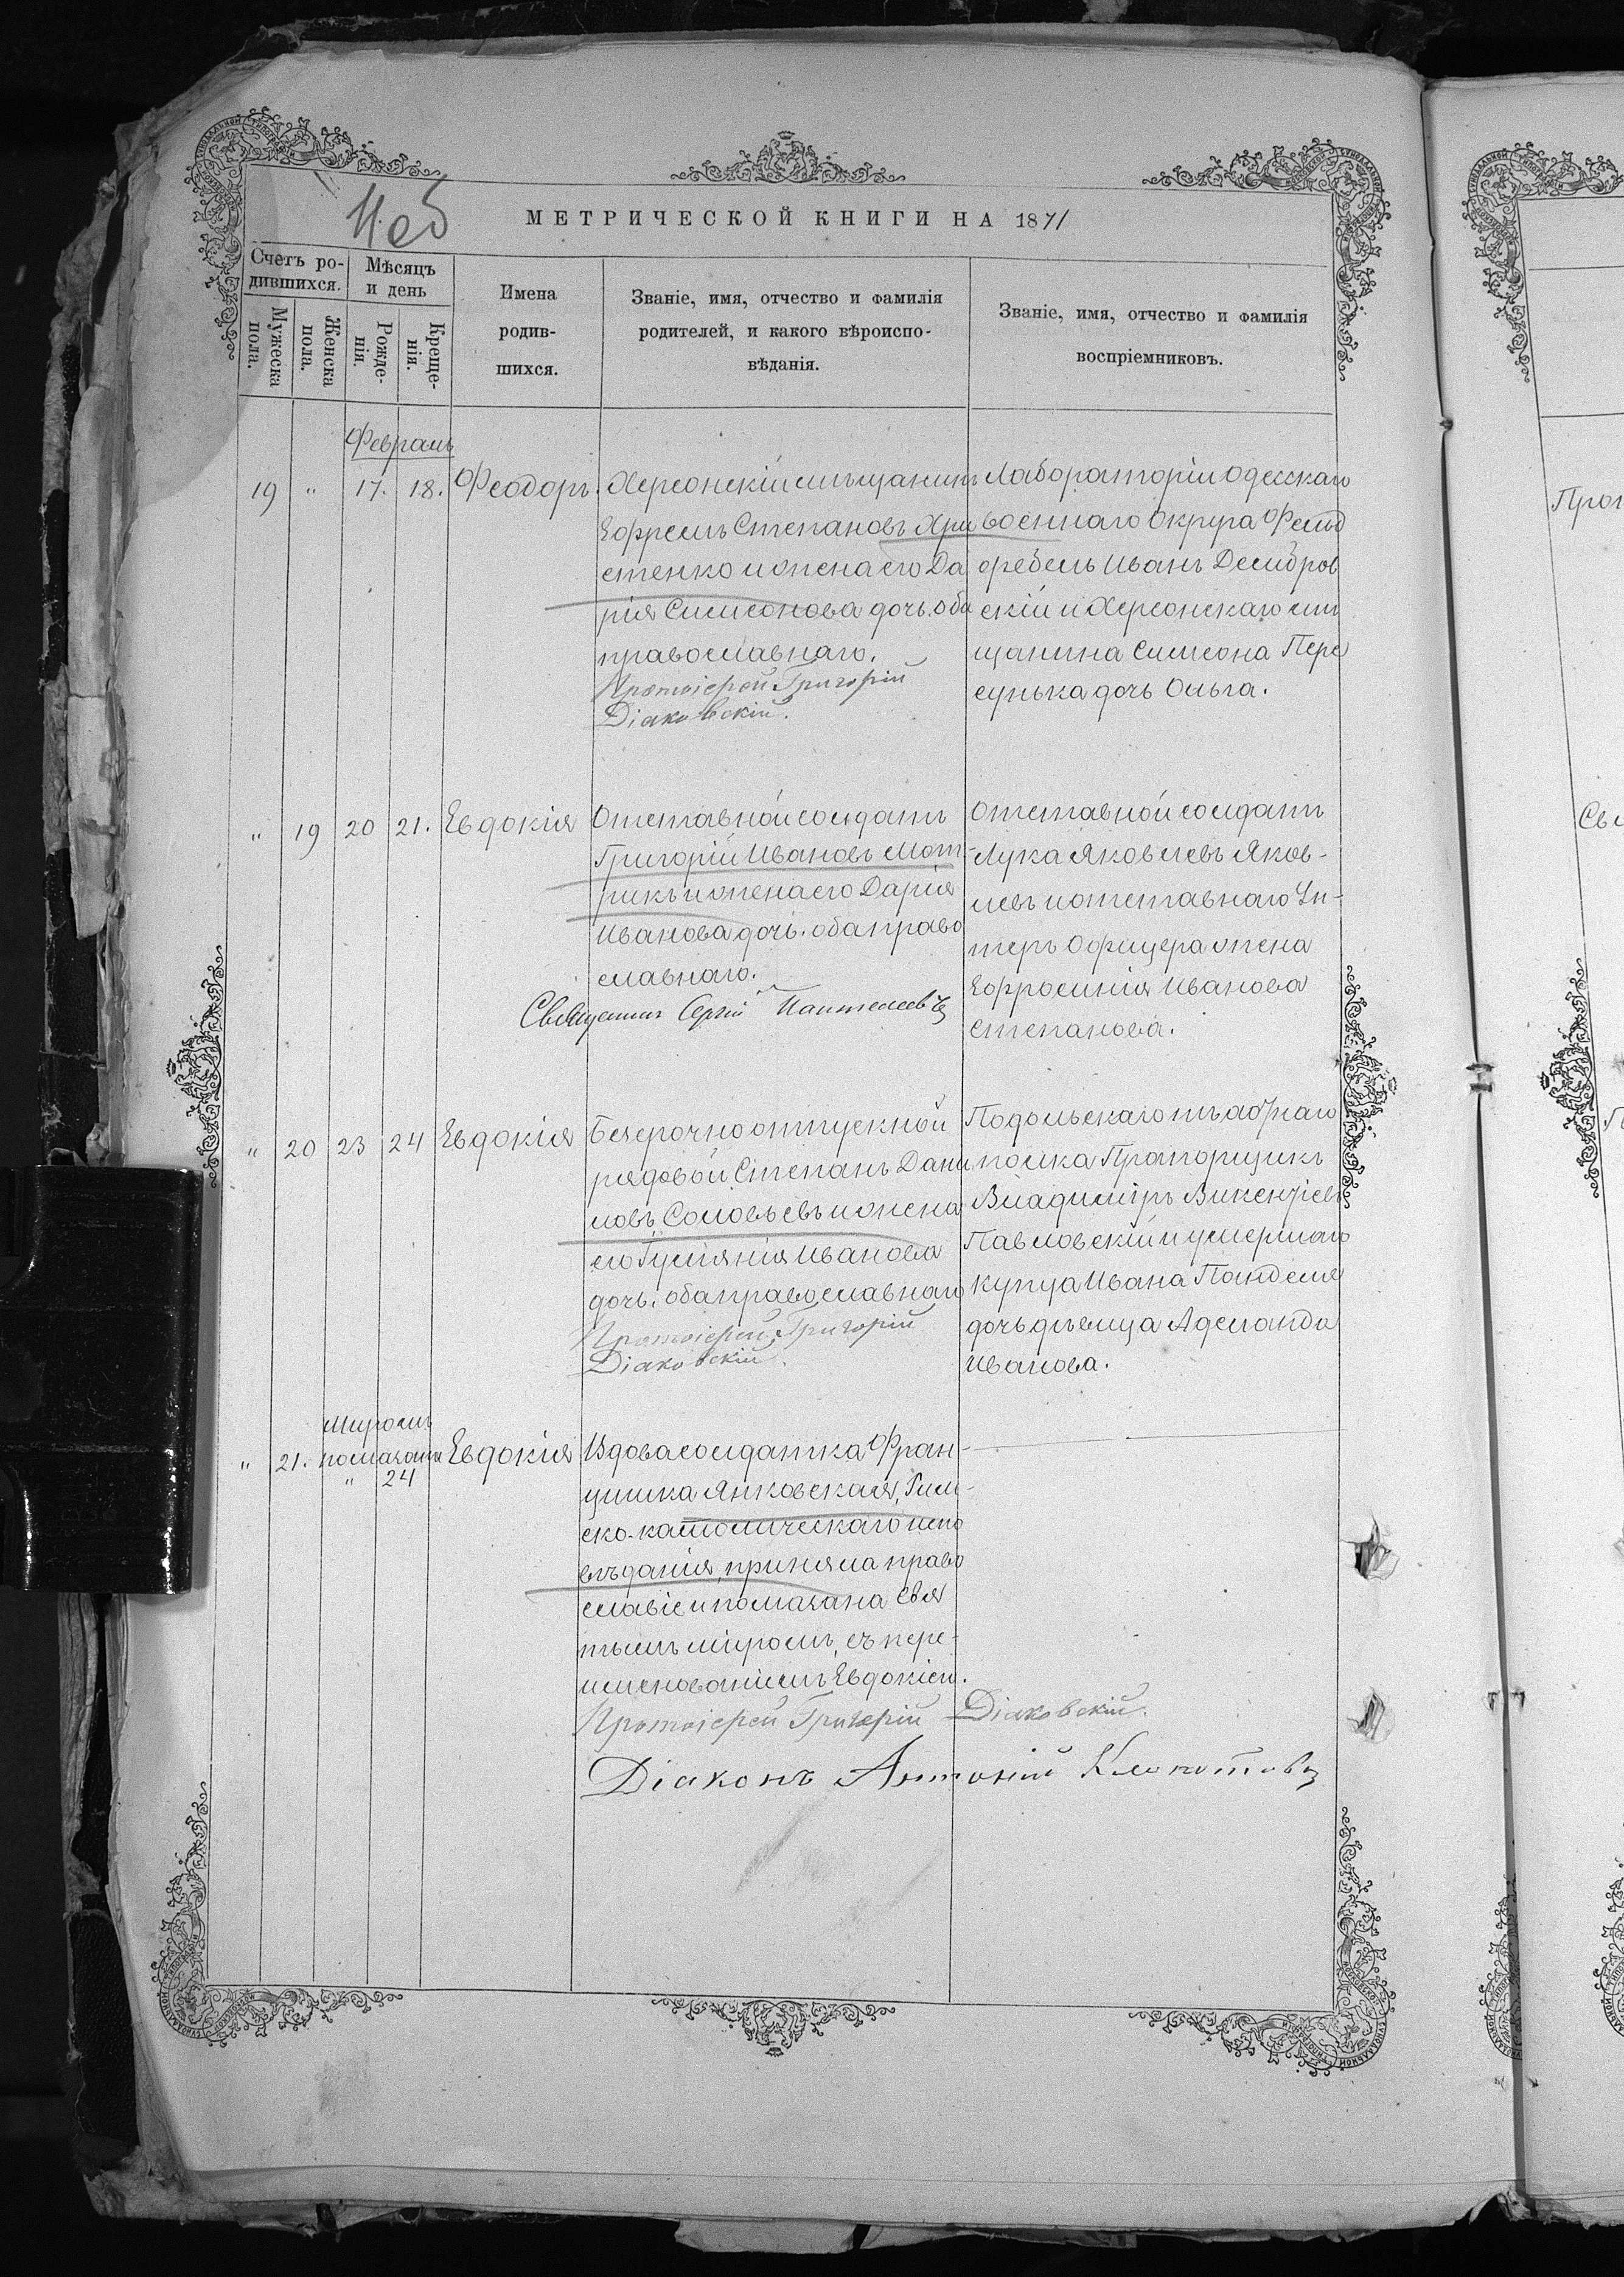 МЕТРИЧЕСКОЙ КНИГИ НА 1871
Счетъ ро-
дившихся.
Мужеска
пола.
Женска
пола.
Мѣсяцъ
и день
Рожде-
нія.
Креще-
нія.
Имена
родив-
шихся.
Званіе, имя, отчество и фамилія
родителей, и какого вѣроиспо-
вѣданія.
Званіе, имя, отчество и фамилія
воспріемниковъ.
Февраль
19 " 17. 18. Феодоръ.
Херсонскій мѣщанинъ
Ефремъ Степановъ Хри
стенко и жена его Да
рія Симеонова дочь. оба
православнаго.
Протоіерей Григорій
Діаковскій.
Лабораторіи Одесскаго
военнаго Округа Фельд
фебель Иванъ Дембров
скій и Херсонскаго мѣ
щанина Симеона Пере
сунька дочь Ольга.
" 19 20 21. Евдокія
Отставной солдатъ
Григорій Ивановъ Мот-
рикъ и жена его Дарія
Иванова дочь. оба право
славнаго.
Священникъ Сергій Пантелеевъ
Отставной солдатъ
Лука Яковлевъ Яков-
левъ и отставнаго Ун-
теръ Офицера жена
Ефросинія Иванова
Степанова.
" 20 23 24 Евдокія
Безсрочно отпускной
рядовой Степанъ Дани
ловъ Соловьевъ и жена
его Іуліянія Иванова
дочь. оба православнаго
Протоіерей Григорій
Діаковскій.
Подольскаго
полка Прапорщикъ
Владиміръ Викентіевъ
Павловскій и умершаго
купца Ивана Панделя
дочь дѣвица Аделаида
Иванова.
" 21. Муромъ
помазана
" 24
Евдокія
Вдова солдатка Фран-
цишка Янковская, Рим-
ско-католическаго испо
вѣданія, приняла право
славіе и помазана Свя
тымъ мѵромъ, съ пере-
именованіемъ Евдокіею.
Протоіерей Григорій Діаковскій.
Діаконъ Антоній Клопотовъ